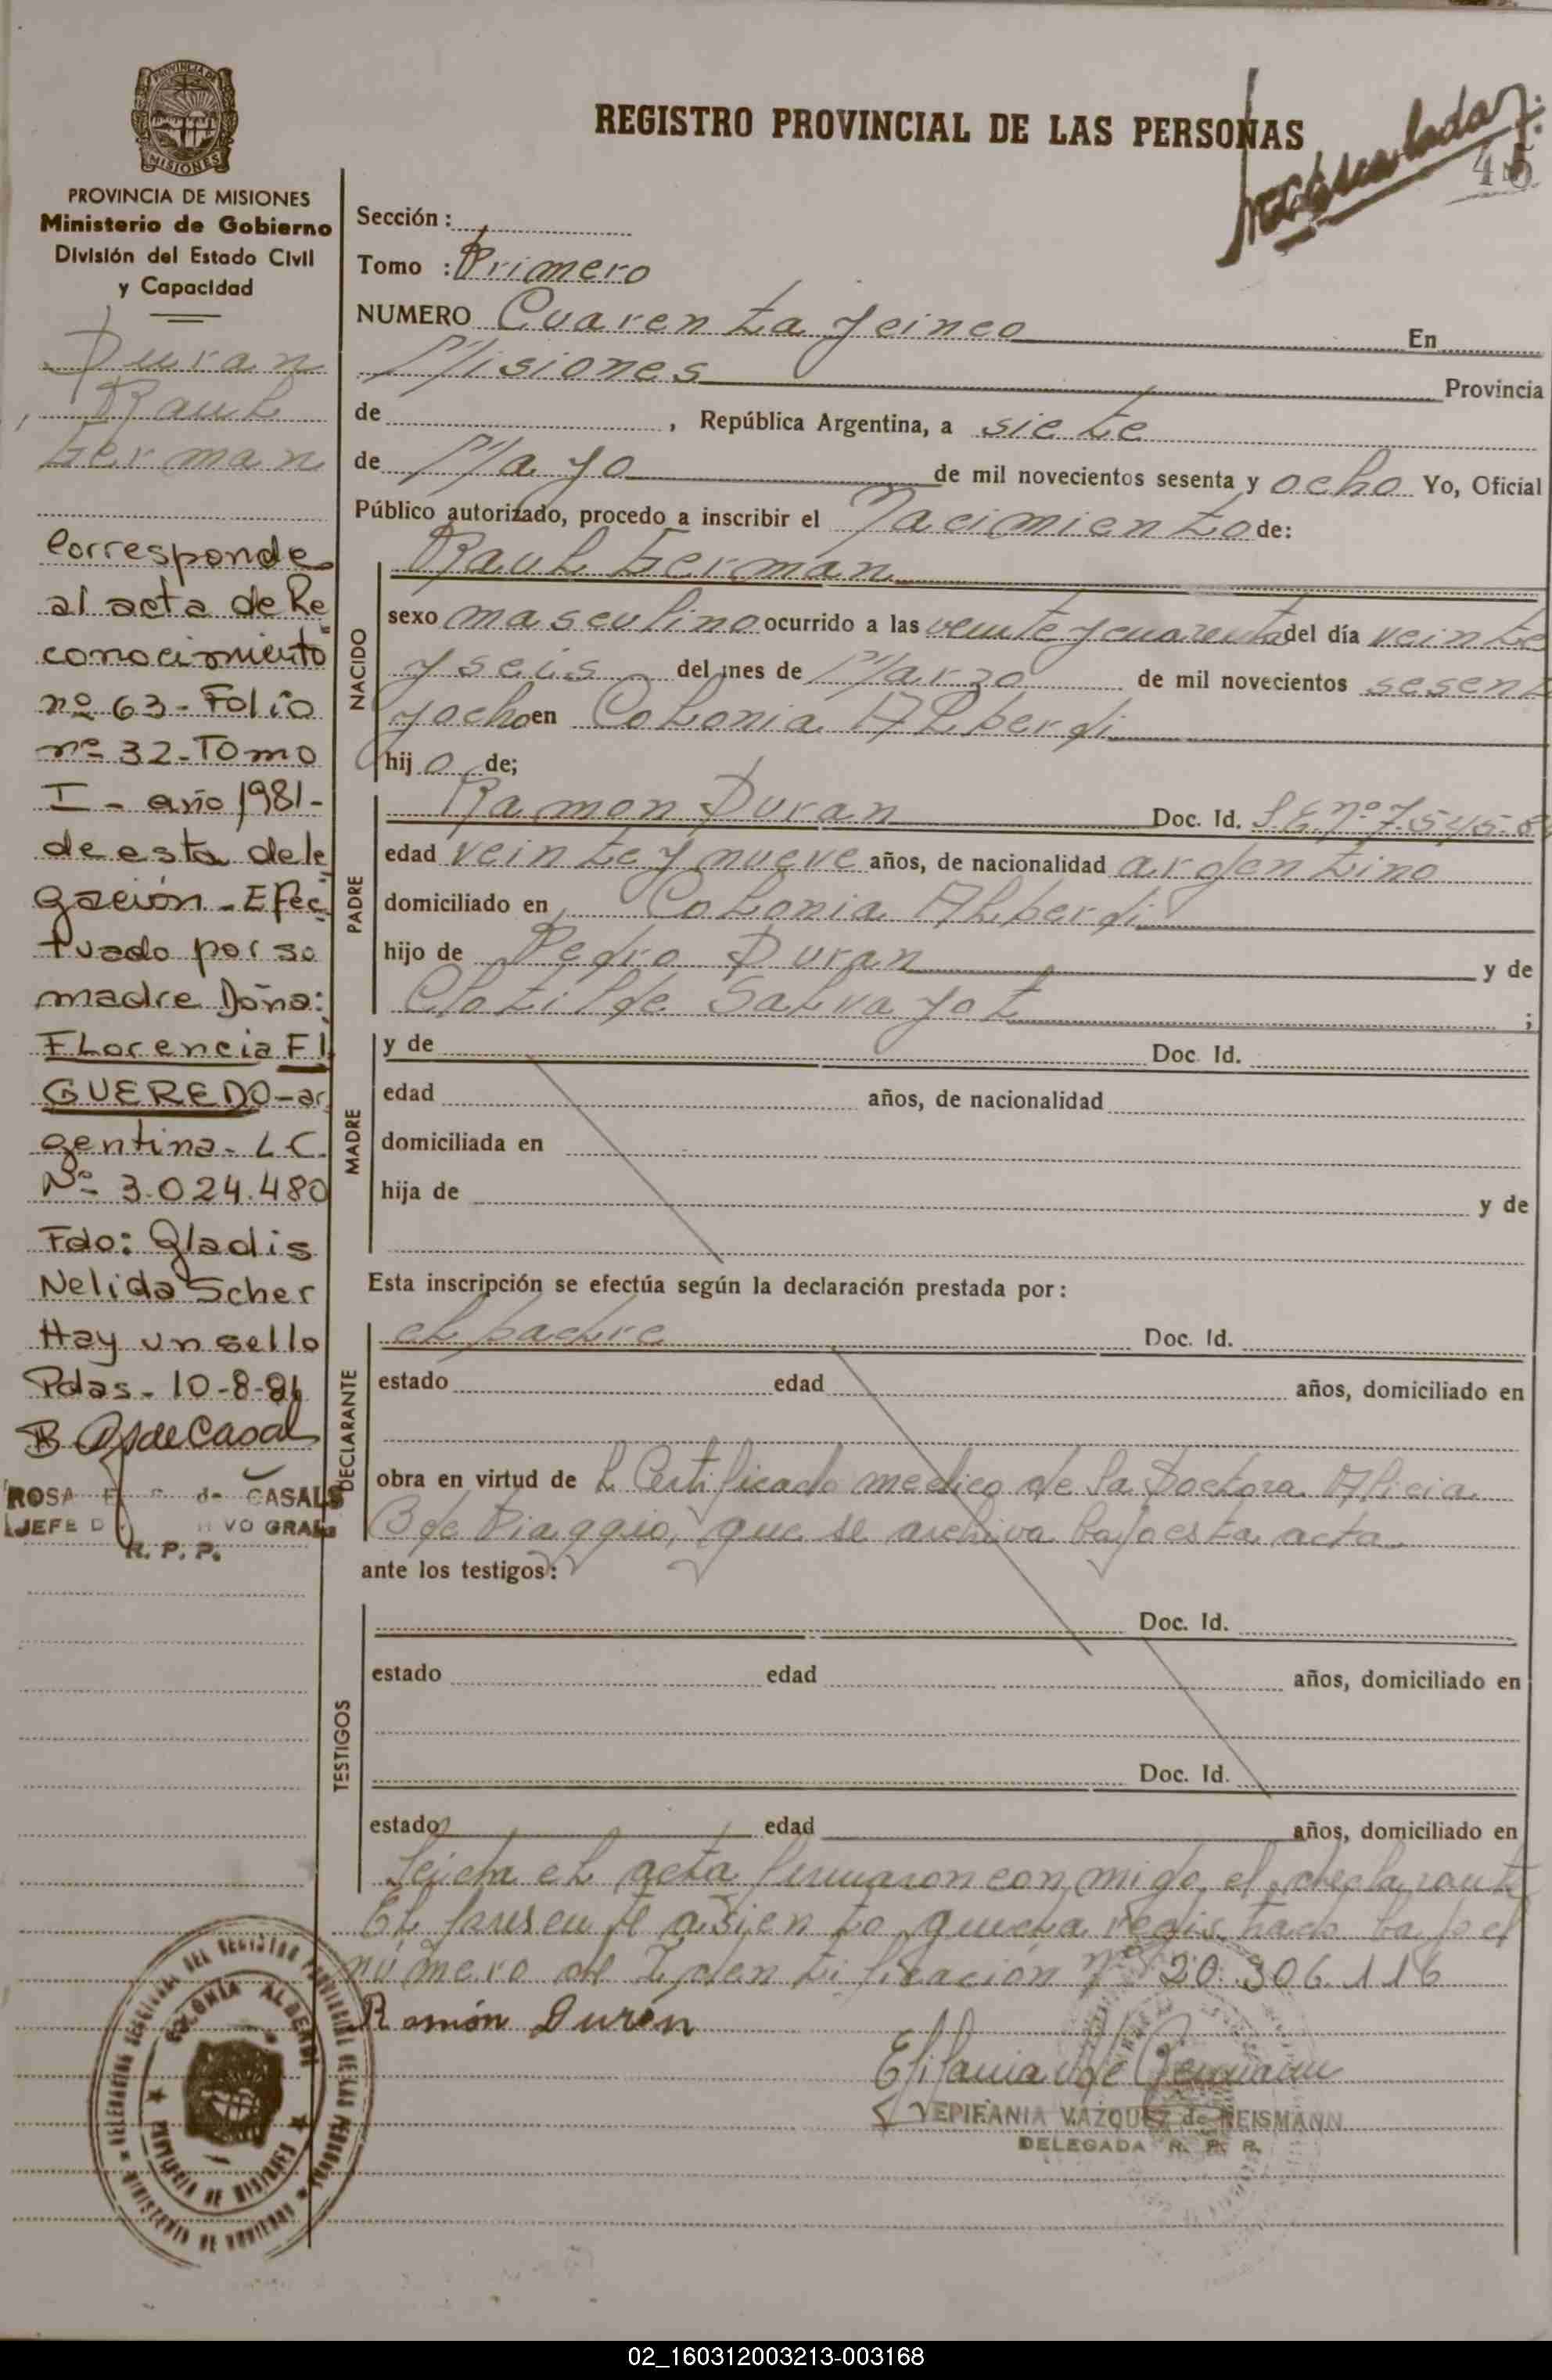 PROVINCIA DE
MISIONES
REGISTRO PROVINCIAL DE LAS PERSONAS
45
PROVINCIA DE MISIONES
Ministerio de Gobierno
División del Estado Civil
y Capacidad
Duran
Raul
German
Corresponde
al acta de Re
conocimiento
nº 63 - Folio
nº 32 - Tomo
I - año 1981 -
de esta dele
gación - Efec
tuado por su
madre Doña:
FLorencia FI
GUEREDO - ar
gentina - L C.
Nº 3.024.480
Fdo: Gladis
Nelida Scher
Hay un sello
Pdas - 10-8-81
ROSA de CASALS
JEFE VO GRAL
R. P. P.
Sección :
Tomo : Primero
NUMERO Cuarenta y cinco En
Misiones Provincia
de , República Argentina, a siete
de Mayo de mil novecientos sesenta y ocho Yo, Oficial
Público autorizado, procedo a inscribir el Nacimiento de:
NACIDO
Raul German
sexo masculino ocurrido a las veinte y cuarenta del día veinte
y seis del mes de Marzo de mil novecientos sesent
y ocho en Colonia Alberdi
hij o de;
PADRE
Ramon Duran Doc. Id. L E. nº 7.545.8
edad veinte y nueve años, de nacionalidad argentino
domiciliado en Colonia Alberdi
hijo de Pedro Duran y de
Clotilde Salvayot ;
MADRE
y de Doc. Id.
edad años, de nacionalidad
domiciliada en
hija de y de
Esta inscripción se efectúa según la declaración prestada por :
DECLARANTE
el padre Doc. Id.
estado edad años, domiciliado en
obra en virtud de L Certificado medico de la Doctora Alicia
B de Biaggio, que se archiva bajo esta acta
ante los testigos :
TESTIGOS
Doc. Id.
estado edad años, domiciliado en
Doc. Id.
estado edad años, domiciliado en
Leida el acta firmaron conmigo, el declarante
El presente asiento queda registrado bajo el
número de Identificación Nº 20.306.116
Ramón Durán
EPIFANIA VAZQUEZ de NEISMANN
DELEGADA R. P. P.
COLONIA ALBERDI
PROVINCIA DE MISIONES
02_160312003213-003168